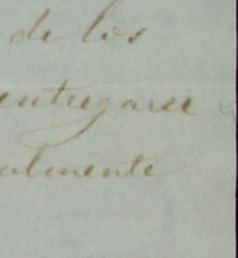 de los
entregarse
almente